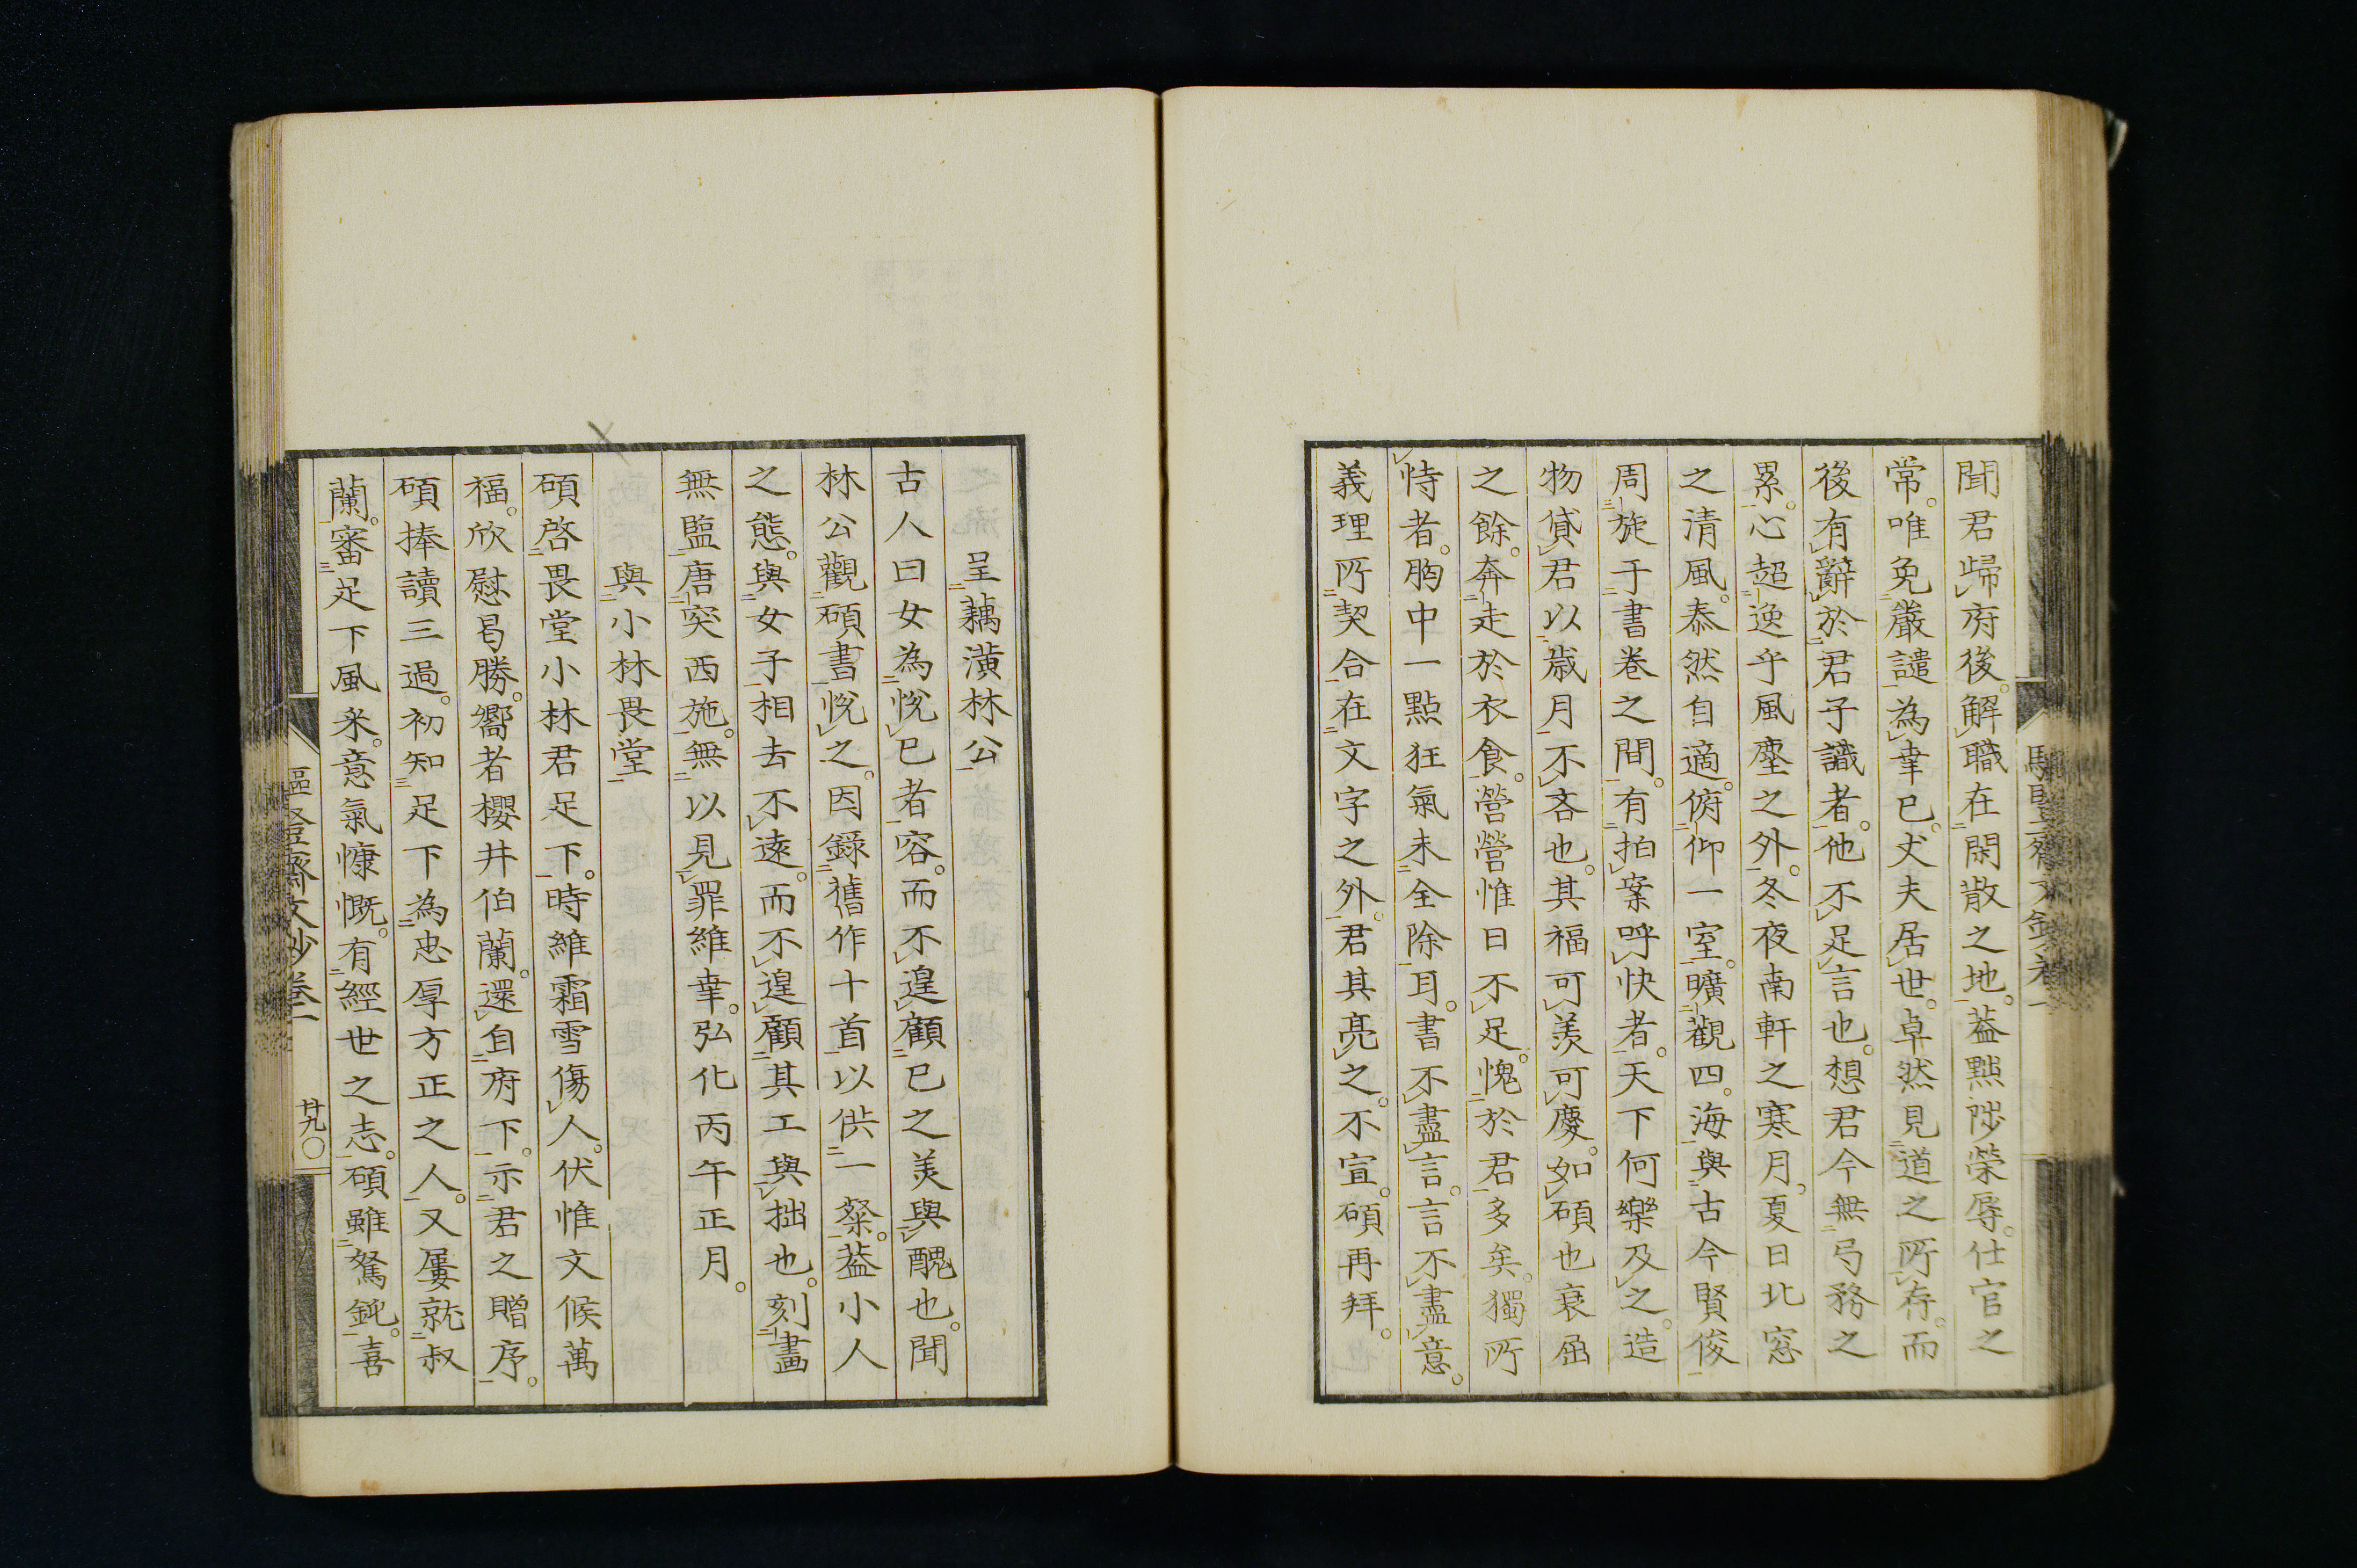 聞君歸府後。解職在閑散之地。葢黙陟榮辱。仕官之
常。唯免嚴譴為幸已。丈夫居世。卓然見道之所存。而
後有辭於君子識者。他不足言也。想君今無弓務之
累。心超逸乎風塵之外。冬夜南軒之寒月。夏日北窓
之清風。泰然自適。俯仰一室。曠觀四海。與古今賢俊
周旋于書卷之間。有拍案呼快者。天下何樂及之。造
物貸君以歳月不吝也。其福可羨可慶。如碩也衰屈
之餘。奔走於衣食。營營惟日不足。愧於君多矣。獨所
恃者。胸中一點狂氣未全除耳。書不盡言。言不盡意。
義理所契合在文字之外。君其亮之。不宣。碩再拜。
呈藕潢林公
古人曰女為悅已者容。而不遑顧已之美與醜也。聞
林公觀碩書悅之。因錄舊作十首以供一粲。葢小人
之態。與女子相去不遠。而不遑顧其工與拙也。刻畫
無監唐突西施。無以見罪維幸。弘化丙午正月。
與小林畏堂
碩啓畏堂小林君足下。時維霜雪傷人。伏惟文候萬
福。欣慰曷勝。嚮者櫻井伯蘭。還自府下。示君之贈序。
碩捧讀三過。初知足下為忠厚方正之人。又屢就叔
蘭。審足下風釆。意氣慷慨。有經世之志。碩雖駑鈍。喜
齋文鈔卷一
廿九